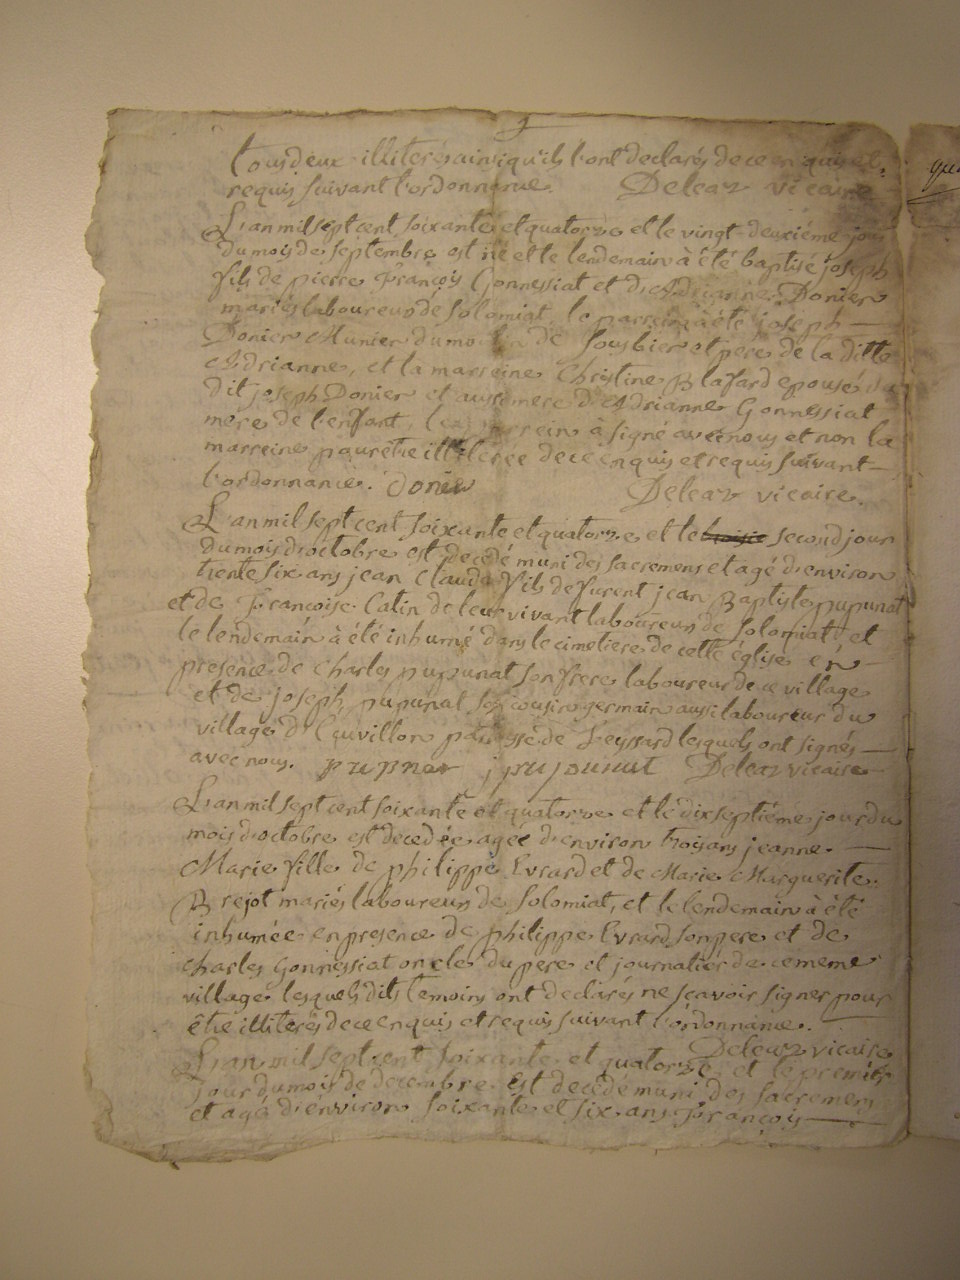 tous deux illiterés ainsi qu'ils l'ont declarés de ce enquis et
requis suivant l'ordonnance. Deleaz vicaire
L'an mil sept cent soixante et quatorze et le vingt deuxiéme jour
du mois de septembre est né et le lendemain à été baptisé joseph
fils de pierre François Gonnessiat et d'Adrianne Donier
mariés laboureurs de Solomiat, le parrein à été joseph
Donier Munier du moulin de Sousbier et pere de la ditte
Adrianne, et la marreine Christine Blafard epouse du
dit joseph Donier et aussi mere d'Adrianne Gonnessiat
mere de l'enfant, le parrein à signé avec nous et non la
marreine pour être illiterée de ce enquis et requis suivant
l'ordonnance. donier Deleaz vicaire.
L'an mil sept cent soixante et quatorze et le troisie second jour
du mois d'octobre est decedé muni des sacremens et agé d'environ
trente six ans jean Claude fils de furent jean Baptiste pupunat
et de Francoise Catin de leur vivant laboureurs de Solomiat, et
le lendemain à été inhumé dans le cimetiere de cette église en
presence de Charles pupunat son frere laboureur de ce village
et de joseph pupunat son cousin germain aussi laboureur du
village d'Eauvillon paroisse de Leyssard lesquels ont signés
avec nous. pupnat j pupunat Deleaz vicaire
L'an mil sept cent soixante et quatorze et le dixseptiéme jour du
mois d'octobre est decedée agée d'environ trois ans jeanne
Marie fille de philippe Evrard et de Marie Marguerite
Brejot mariés laboureurs de Solomiat, et le lendemain à été
inhumée en presence de philippe Evrard son pere et de
Charles Gonnessiat oncle du pere et journalier de ce meme
village lesquels dits temoins ont declarés ne sçavoir signer pour
être illiterés de ce enquis et requis suivant l'ordonnance.
Deleaz vicaire
L'an mil sept cent soixante et quatorze et le premier
jour du mois de decembre est decedé muni des sacremens
et agé d'environ soixante et six ans François